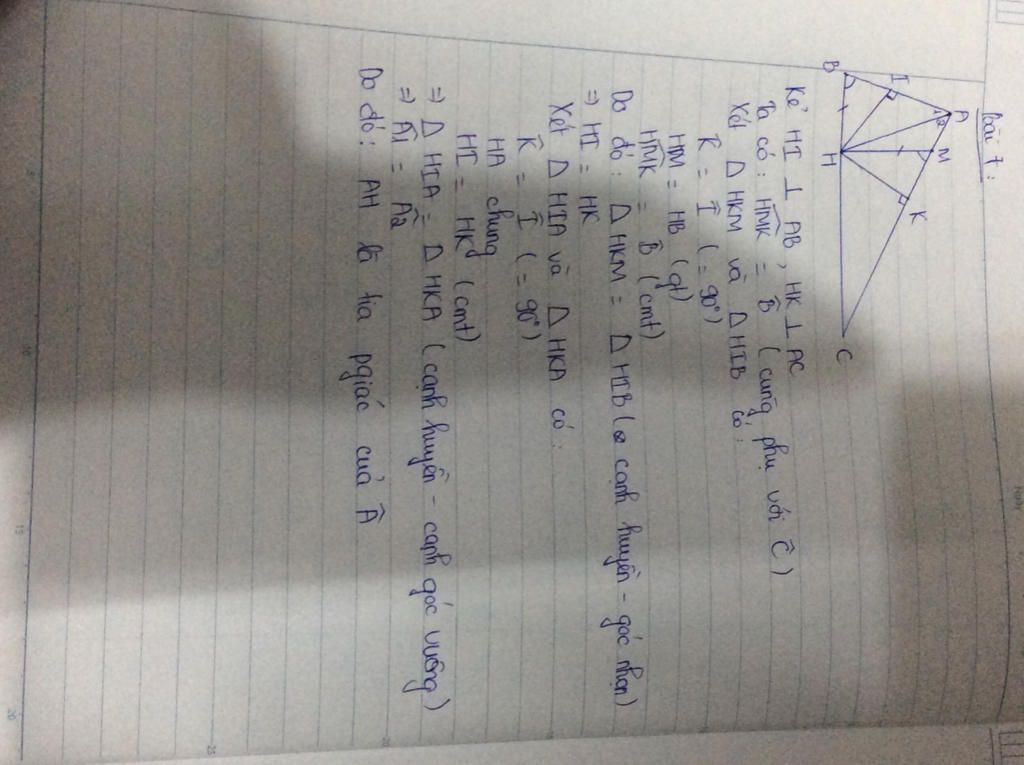 Bài 7:
A
I
M
K
B
H
C
Kẻ HI ⊥ AB, HK ⊥ AC
Ta có: HMK = B̂ (cùng phụ với Ĉ)
Xét Δ HKM và Δ HIB có:
K̂ = Î (= 90°)
HM = HB (gt)
HMK = B̂ (cmt)
Do đó: Δ HKM = Δ HIB (cạnh huyền - góc nhọn)
⇒ HI = HK
Xét Δ HIA và Δ HKA có:
K̂ = Î (= 90°)
HA chung
HI = HK (cmt)
⇒ Δ HIA = Δ HKA (cạnh huyền - cạnh góc vuông)
⇒ Â1 = Â2
Do đó: AH là tia pgiác của Â